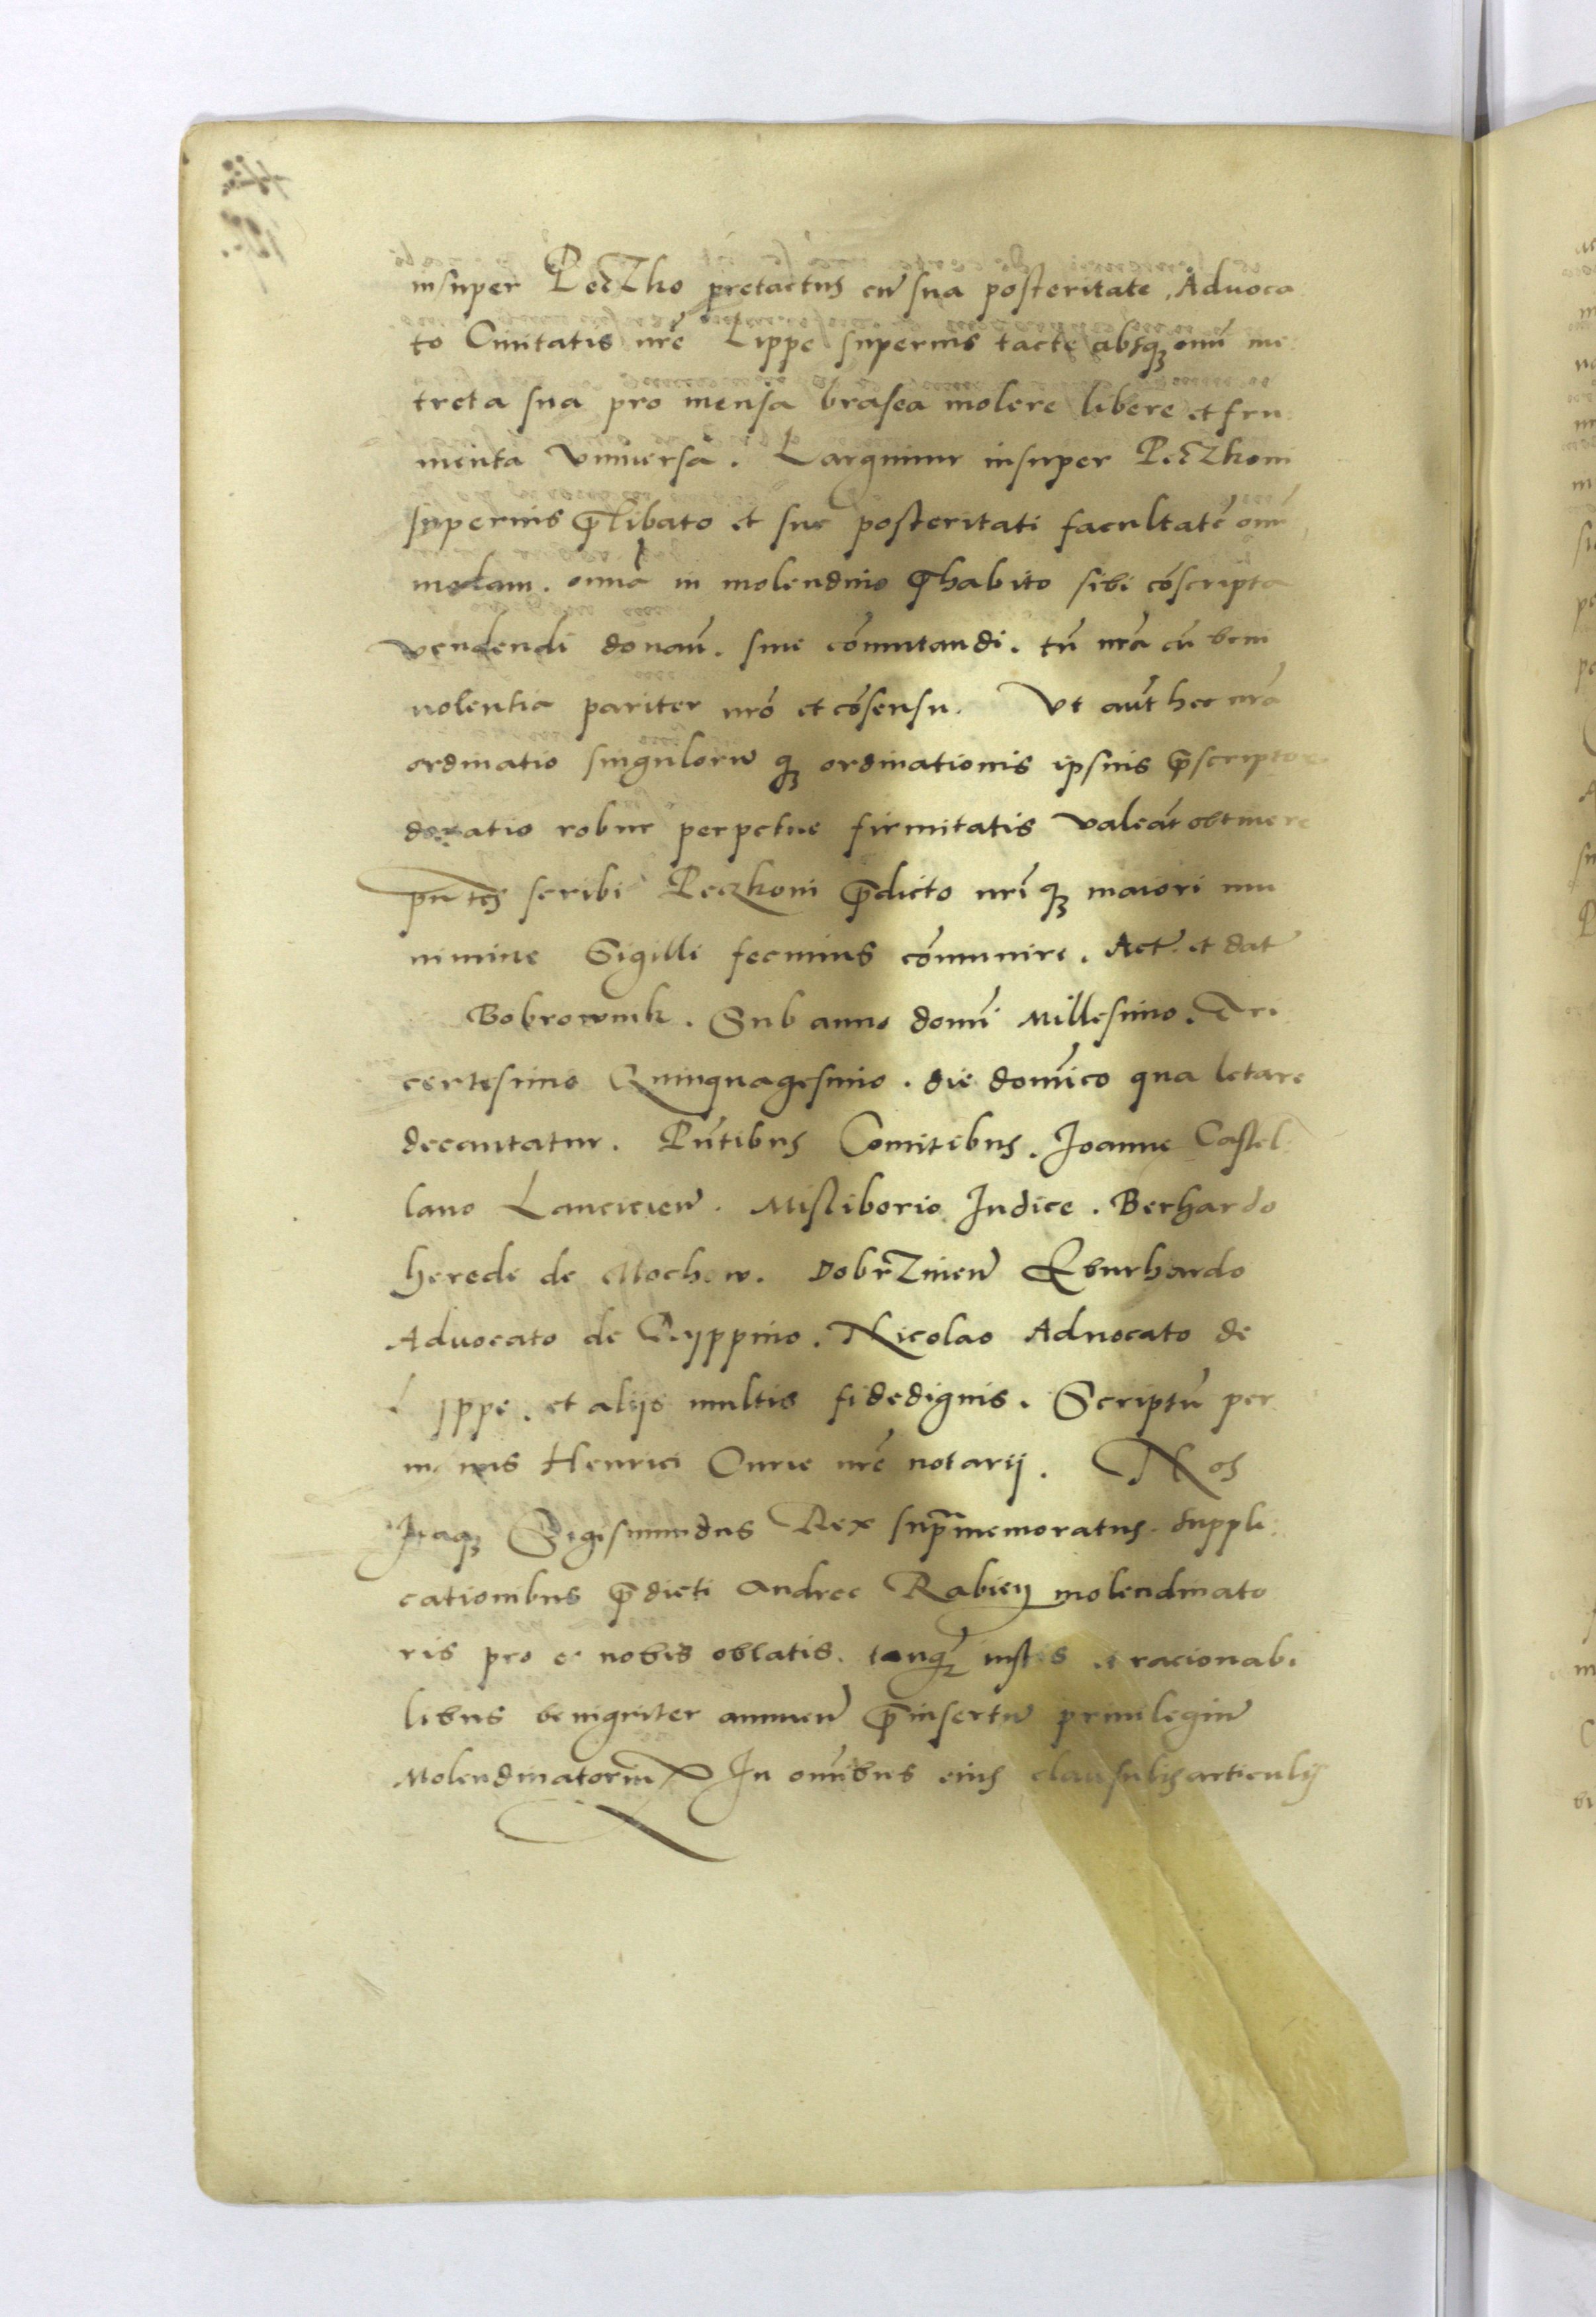 insuper Peczko pretactus cu̅ sua posteritate Aduoca
to Ciuitatis nr̅e Lippe superius tacte absqꝫ omni̅ me:
treta sua pro mensa brasea molere libere et fru:
menta vniuersa. Largimur insuper Peczkoni
superius p̅libato et sue posteritati facultate̅ om̅i
modam. omnia in molendino p̅habito sibi co̅scripta
vendendi donan̅. siue co̅mutandi. tn̅ nr̅a cu̅ beni
uolentia pariter nr̅o et co̅sensu. Vt aut̅ hec nr̅a
ordinatio singuloru̅ qꝫ ordinationis ipsius p̅scriptor.
donatio robur perpetue firmitatis valea̅t obtinere
pn̅tes scribi Peczkoni p̅dicto nr̅i qꝫ maiori mu
nimine Sigilli fecimus co̅munire. Act̅. et dat̅
Bobrownik. Sub anno domi̅ Millesimo. Tri
centesimo Quinquagesimo. die domi̅co qua letare
decantatur. Pn̅tibus Comitibus. Joanne Castel:
lano Lancicien̅. Mistiborio Judice. Berhardo
herede de Mochow. Dobrzinen̅ Eburhardo
Aduocato de Ryppino. Nicolao Aduocato de
Lyppe. et alijs multis fidedignis. Scriptu̅ per
manus Henrici Curie nr̅e notarij. Nos
Itaqꝫ Sigismundus Rex sup̅memoratus. suppli:
cationibus p̅dicti Andree Rabiey molendinato
ris pro eo nobis oblatis. tanqꝫ iustis et racionabi
libus benigniter annuen̅ p̅insertu̅ priuilegiu̅
Molendinatoriu̅ In omnibus eius clausulis articulis